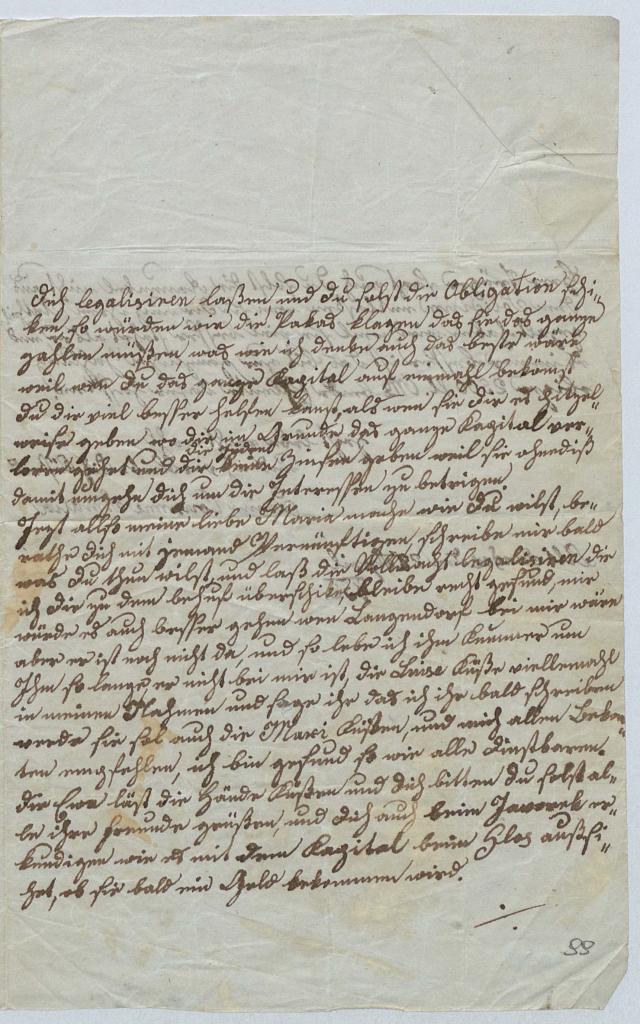 dich legalisiren laßen und du solst die Obligation schi-
ken, so würden wir die Pakas klagen das sie das ganze
zahlen müßen was wie ich denke auch das beste wäre
weil wen du das ganze Kapital auf einmahl bekömst
du dir viel besser helfen kanst, als wen sie dir es
weise geben wo dir im Grunde das ganze Kapital ver-
loren gehet und dir die Juden keine Zinsen geben weil sie ohnediß
damit umgehn dich um die Interessen zu betrigen.
Jezt alls meine liebe Maria mache wie du wilst, be-
rathe dich mit jemand Vernünftigen, schreibe mir bald
was du thun wilst, und laß die Vollmacht legalisiren die
ich dir zu dem behuf überschike, bleibe recht gesund, mir
würde es auch besser gehen wen Langendorf bei mir wäre
aber er ist noch nicht da und so lebe ich im Kummer um
Ihm so lange er nicht bei mir ist, die Luise Küße viellemahl
in meinen Nahmen und sage ihr das ich ihr bald schreiben
werde sie sol auch die Mari Küßen, und mich allen Bekan-
ten empfehlen, ich bin gesund so wie alle Dinstbaren.
die Ewa läst die Hände Küßen und dich bitten du solst al-
le ihre freunde grüßen, und dich auch beim Javorek er-
kundigen wie es mit dem Kapital beim außsi-
het, ob sie bald ein Geld bekommen wird.
99